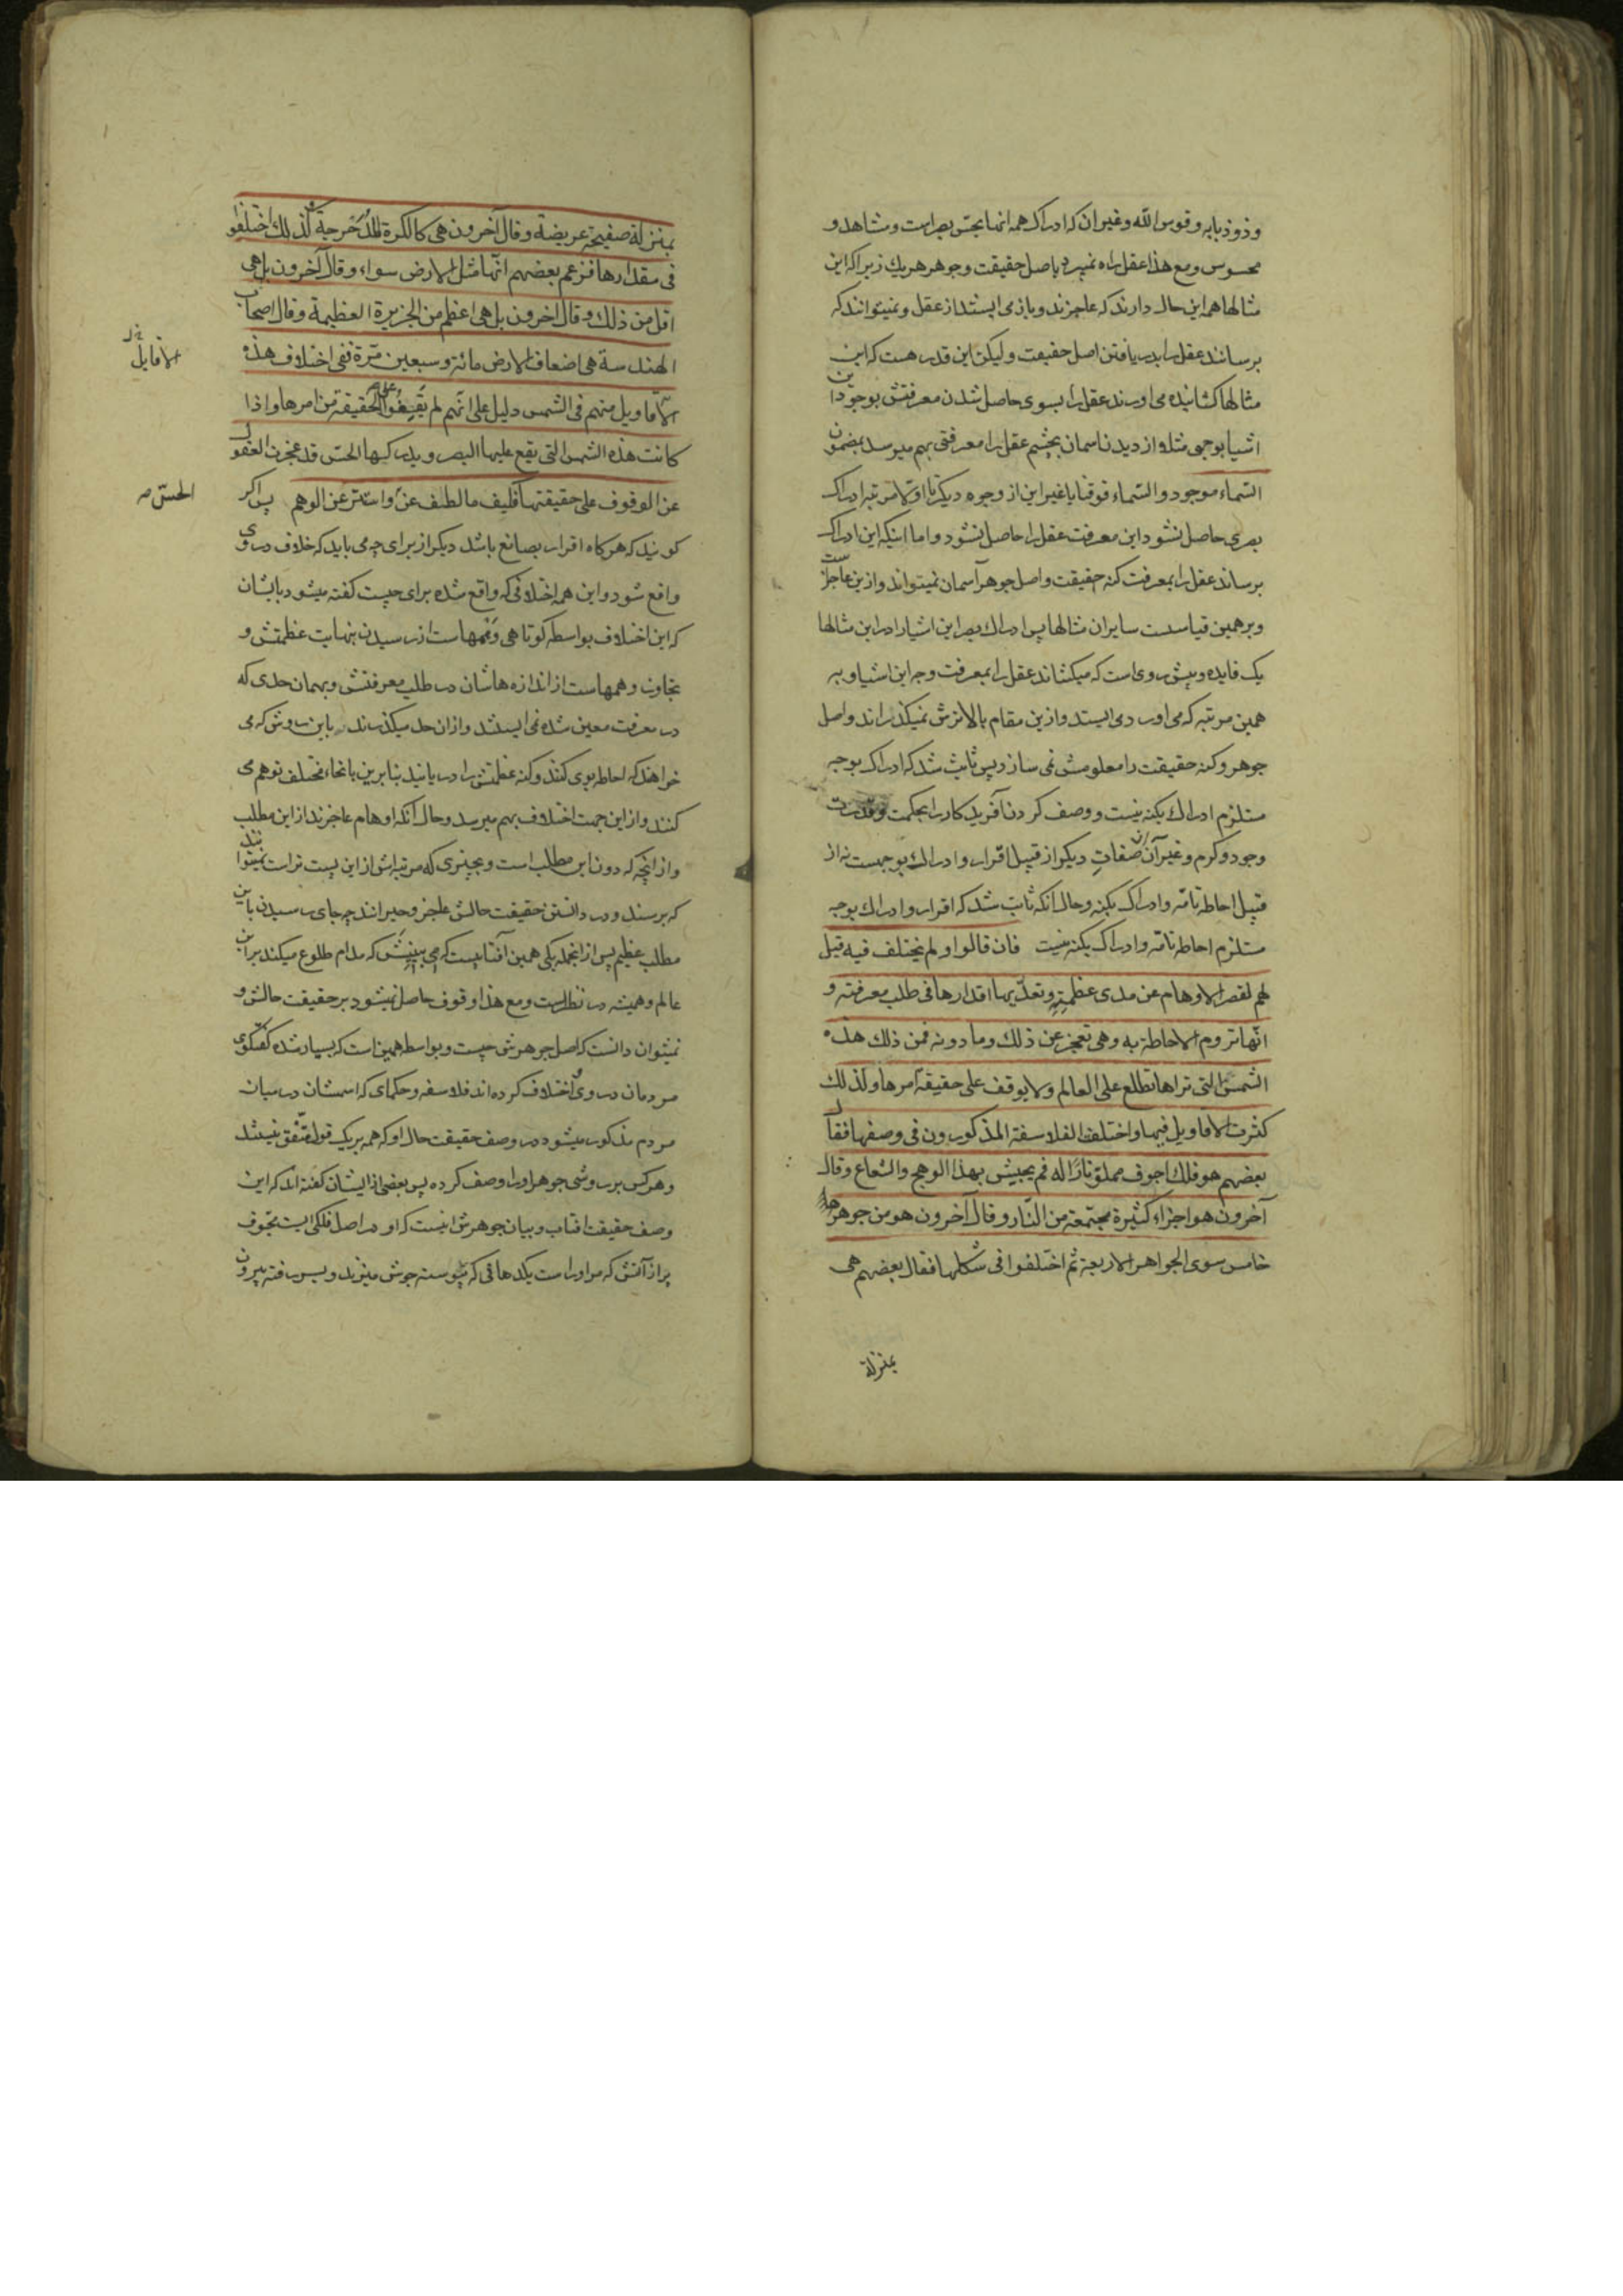 وذوذبابه وقوس الله وغیر ان که ادراک همه انها بحس بصراست ومشاهد و
محسوس ومع هذا عقل راه نمیبرد باصل حقیقت وجوهر هریك زیراکه این
مثالها همه این حال دارند که عاجزند وباز می ایستند از عقل ونمیتوانند که
برسانند عقل را بدریافتن اصل حقیقت ولیکن این قدر هست که این
مثالها کشانیده می اورند عقل را بسوی حاصل شدن معرفتش بوجود این
اشیا بوجهی مثلا از دیدن اسمان بچشم عقل را معرفتی بهم میرسد بمضمون
السماء موجود والسماء فوقنا یا غیر این از وجوه دیکر تا اولا مرتبه ادراک
بصری حاصل نشود این معرفت عقل را حاصل نشود واما اینکه این ادراک
برساند عقل را بمعرفت کنه حقیقت واصل جوهر آسمان نمیتواند وازین عاجزست
وبرهمین قیاسست سایر ان مثالها پس ادراك بصر این اشیارا در این مثالها
یک فایده وپیش روی است که میکشاند عقل را بمعرفت وجه این اشیا و به
همین مرتبه که می اورد می ایستد وازین مقام بالاترش نمیکذراند واصل
جوهر وکنه حقیقت را معلومش نمی سازد پس ثابت شد که ادراک بوجه
مستلزم ادراك بکنه نیست و وصف کردن آفریدکار را بحکمت وقدرت
وجود وکرم وغیر آن از صفات دیکر از قبیل اقرار وادراك بوجهست نه از
قبیل احاطه تامه وادراک بکنه وحال انکه ثابت شد که اقرار وادراك بوجه
مستلزم احاطه تامه وادراک بکنه نیست فان قالوا ولم یختلف فیه قیل
لهم لقصر الاوهام عن مدی عظمته وتعدیها اقدارها فی طلب معرفته و
انها تروم الاحاطة به وهی تعجز عن ذلك وما دونه فمن ذلك هذه
الشمس التی تراها تطلع علی العالم ولا یوقف علی حقیقة امرها ولذلك
کثرت الاقاویل فیها واختلفت الفلاسفة المذکورون فی وصفها فقال
بعضهم هو فلك اجوف مملو نارا له فم یجیش بهذا الوهج والشعاع وقال
آخرون هو اجزاء کثیرة مجتمعة من النار وقال آخرون هو من جوهر
خامس سوی الجواهر الاربعة ثم اختلفوا فی شکلها فقال بعضهم هی
بمنزلة
بمنزلة صفیحة عریضة وقال آخرون هی کالکرة المدحرجة کذلك اختلفوا
فی مقدارها فزعم بعضهم انها مثل الارض سواء وقال آخرون بل هی
اقل من ذلك وقال اخرون بل هی اعظم من الجزیرة العظیمة وقال اصحاب
الهندسة هی اضعاف الارض مائة وسبعین مرة ففی اختلاف هذه
الاقاویل
الاقاویل منهم فی الشمس دلیل علی انهم لم یقفوا علی الحقیقة من امرها واذا
کانت هذه الشمس التی یقع علیها البصر ویدرکها الحس قد عجزت العقول
عن الوقوف علی حقیقتها فکیف ما لطف عن واستتر عن الوهم پس اکر
الحس
کویند که هرکاه اقرار بصانع باشد دیکر از برای چه می باید که خلاف در وی
واقع شود واین همه اختلافی که واقع شده برای چیست کفته میشود بایشان
که این اختلاف بواسطه کوتاهی وهمهاست از رسیدن بنهایت عظمتش و
تجاوز وهمهاست از اندازه هاشان در طلب معرفتش وبهمان حدی که
در معرفت معین شده نمی ایستند وازان حد میکذرند باین روش که می
خواهند که احاطه بوی کنند وکنه عظمتش را دریابند بنابرین بانحاء مختلف توهم می
کنند وازاین جهت اختلاف بهم میرسد وحال آنکه اوهام عاجزند از این مطلب
وازانچه که دون این مطلب است وبچیزی که مرتبه اش از این پست تر است نمیتوانند
که برسند ودر دانستن حقیقت حالش عاجز وحیرانند چه جای رسیدن باین
مطلب عظیم پس از انجمله یکی همین آفتابیست که می بینیش که مدام طلوع میکند براین
عالم وهمیشه در نظرست ومع هذا وقوف حاصل نمیشود بر حقیقت حالش و
نمیتوان دانست که اصل جوهرش چیست وبواسطه همین است که بسیار شده کفتکوی
مردمان در وی واختلاف کرده اند فلاسفه وحکمای که اسمشان در میان
مردم مذکور میشود در وصف حقیقت حال او که همه بر یک قول متفق نیستند
وهرکس بر روشی جوهر اورا وصف کرده پس بعضی از ایشان کفته اند که این
وصف حقیقت افتاب وبیان جوهرش اینست که او در اصل فلکی است مجوف
پر از آتش که مر اوراست یکدهانی که پیوسته جوش میزند وبسبب رفته بیرون